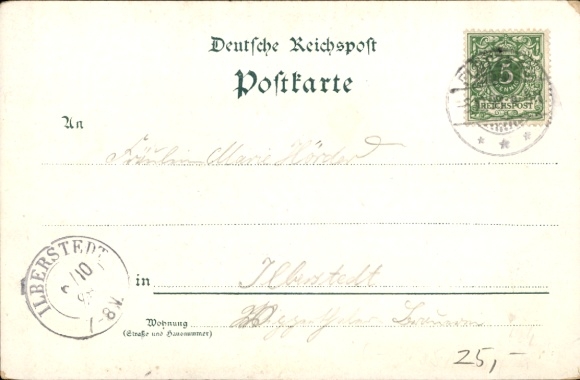 Deutsche Reichspost
Postkarte
5
REICHSPOST
An
Fräulein Marie Hörder
ILBERSTEDT
/10
8V.
in Ilberstedt
Wohnung
(Straße und Hausnummer)
25,-